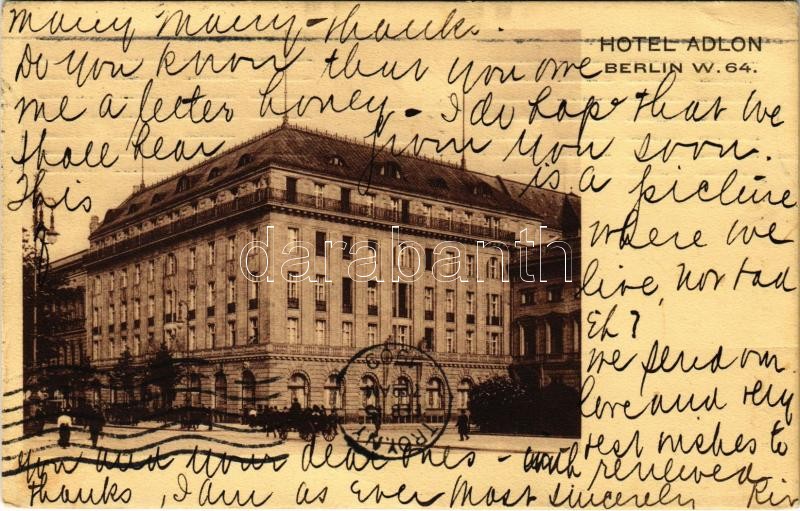 many many - thanks.
HOTEL ADLON
BERLIN W. 64.
Do you know that you owe
me a letter honey - I do hope that we
shall hear from you soon.
This is a picture
of where we
live, not bad
Eh?
We send our
love and very
best wishes to
you and your dear ones - with renewed
thanks, I am as Ever Most Sincerely
darabanth
TROY, N.Y.
1909